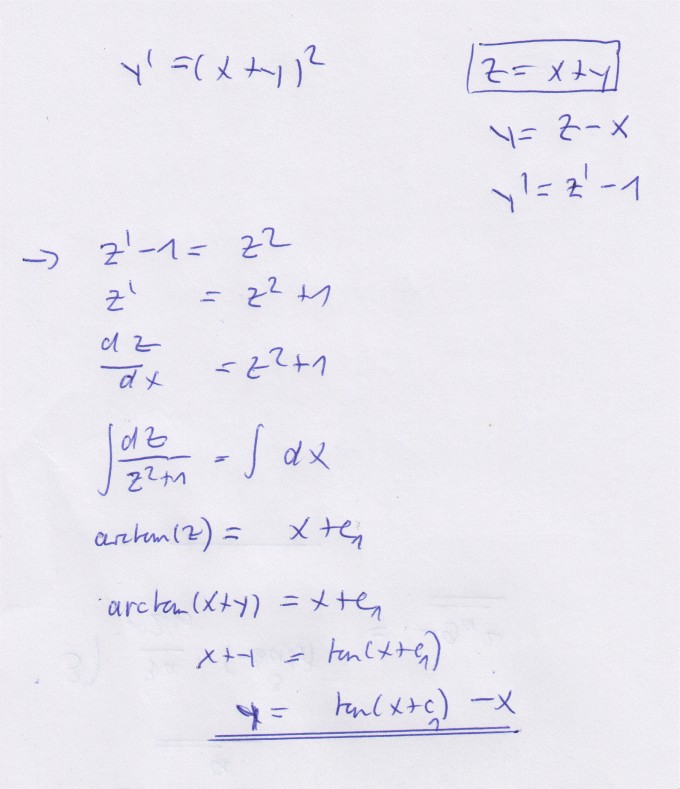 y' = (x+y)²
z = x+y
y = z-x
y' = z'-1
→ z'-1 = z²
z' = z²+1
dz/dx = z²+1
∫ dz/(z²+1) = ∫ dx
arctan(z) = x+c₁
arctan(x+y) = x+c₁
x+y = tan(x+c₁)
y = tan(x+c₁) -x